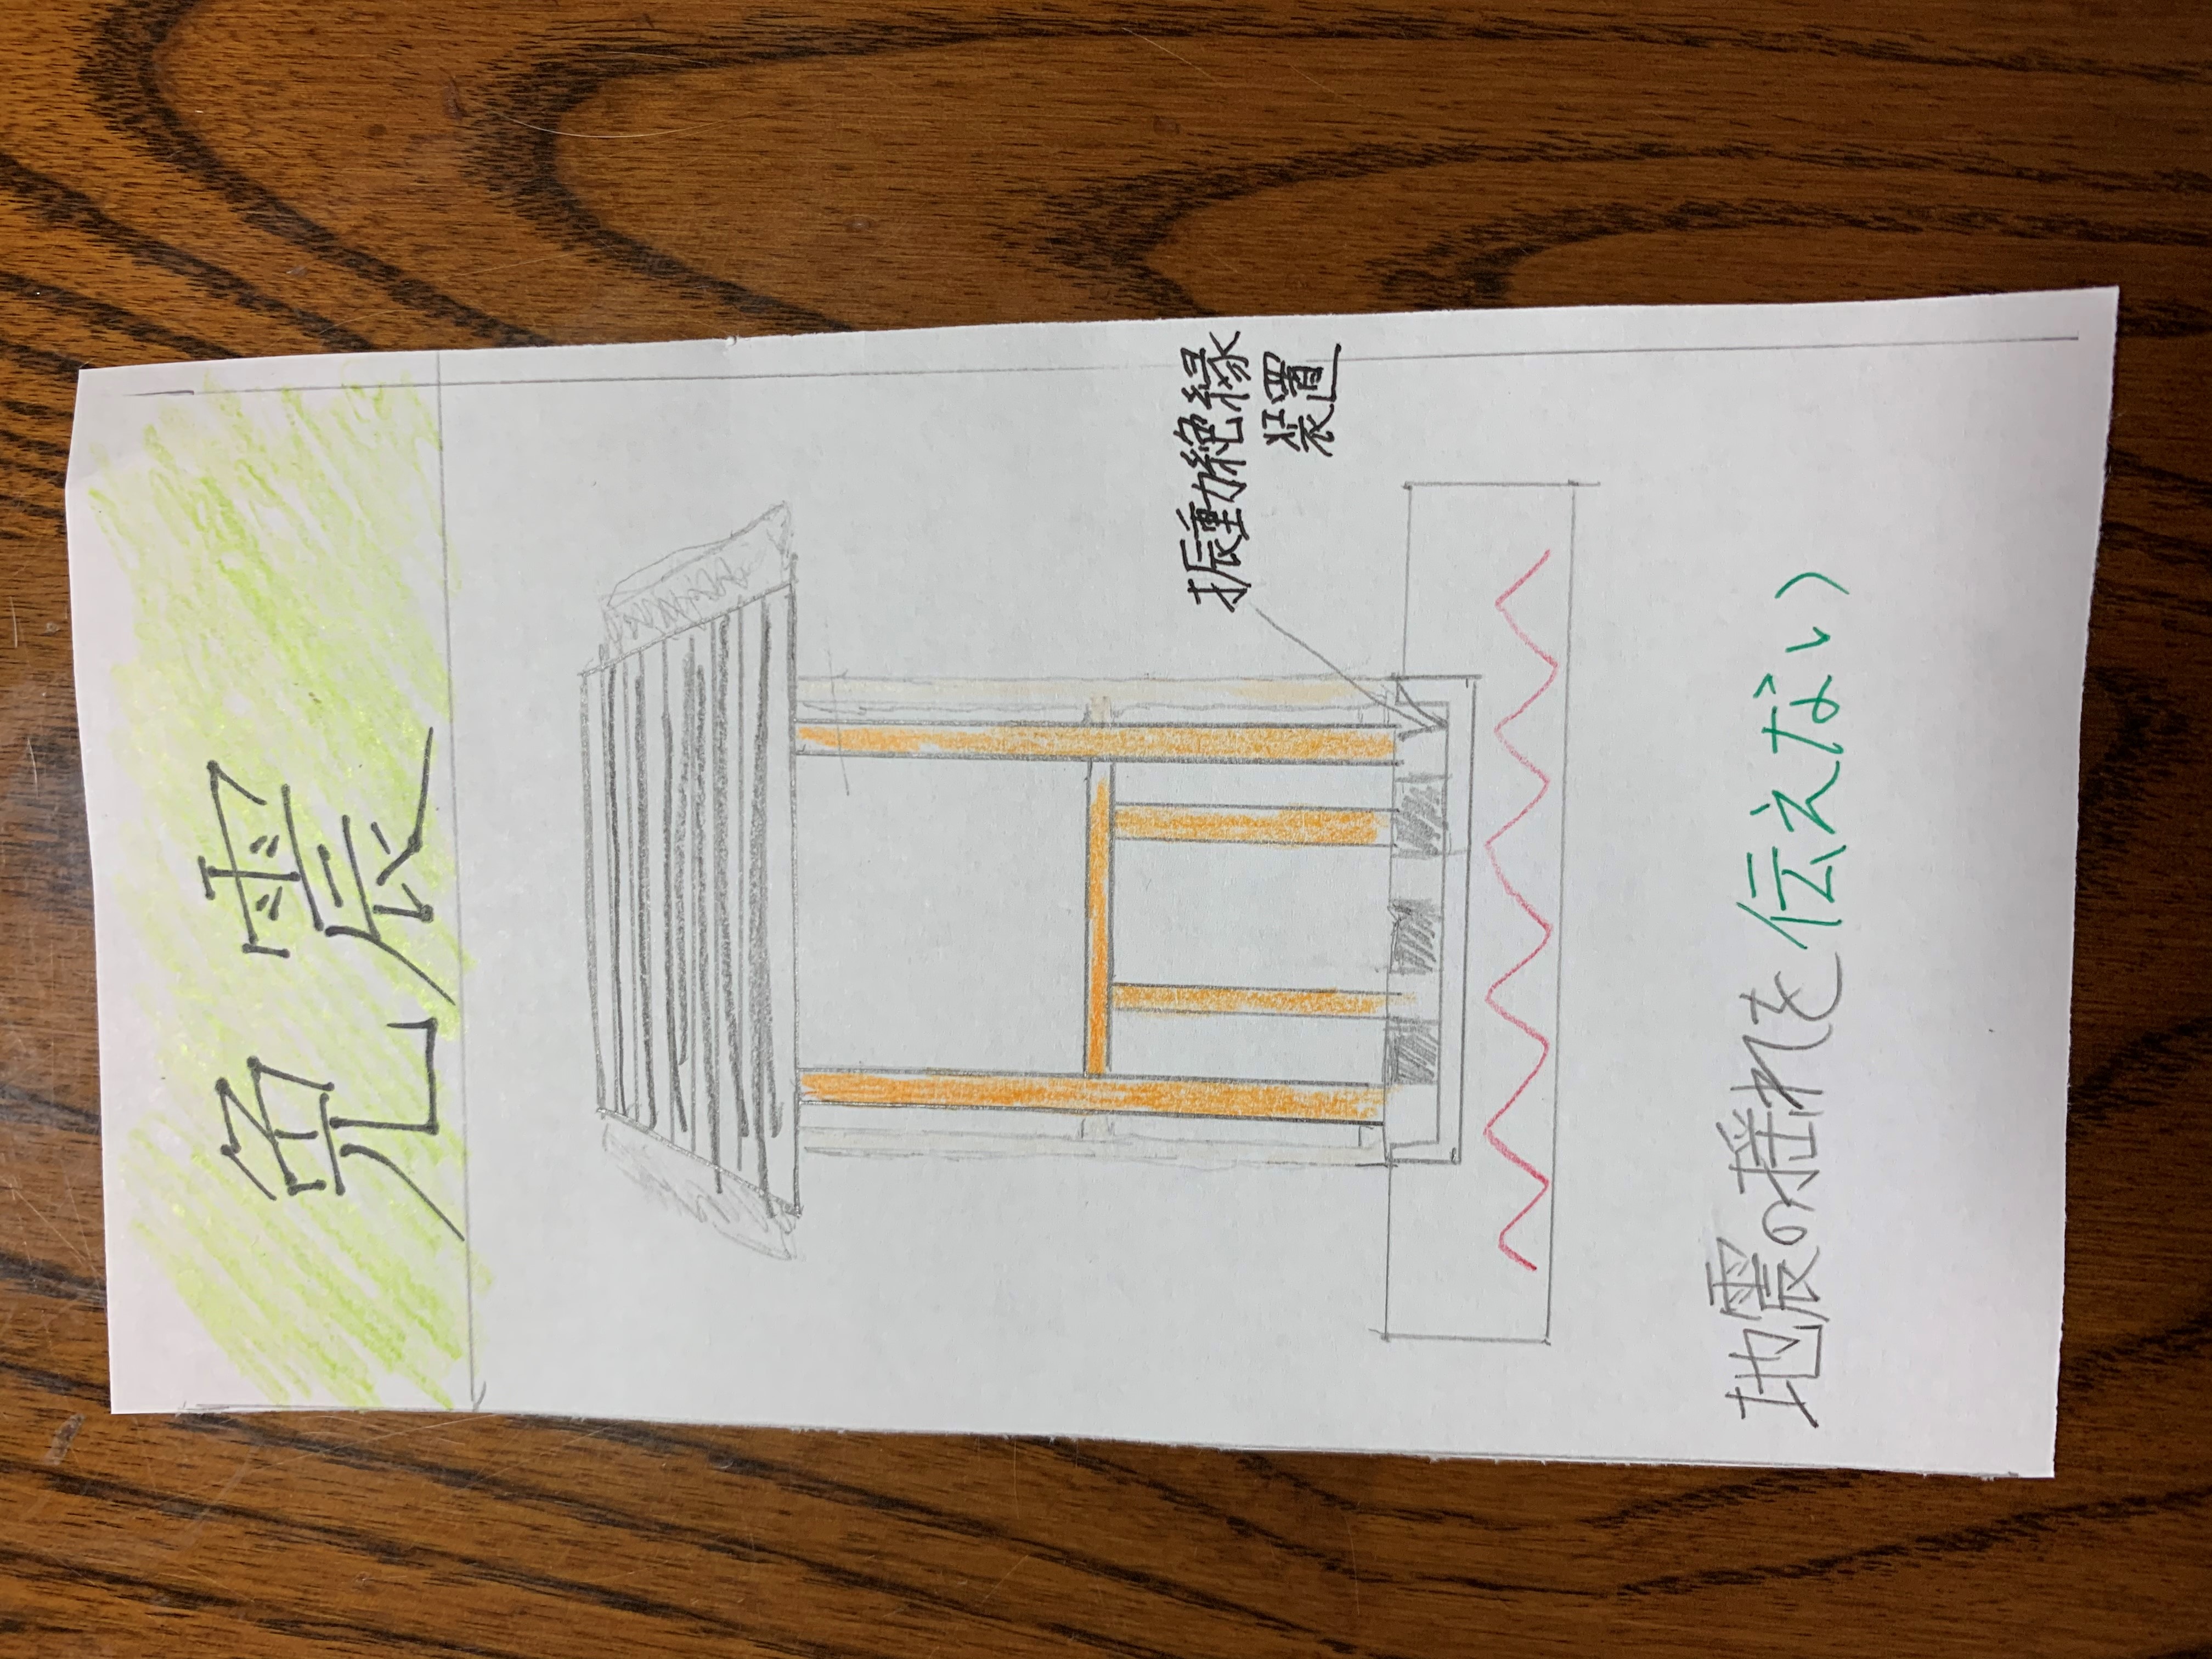 免震
振動絶縁
装置
地震の揺れを伝えない